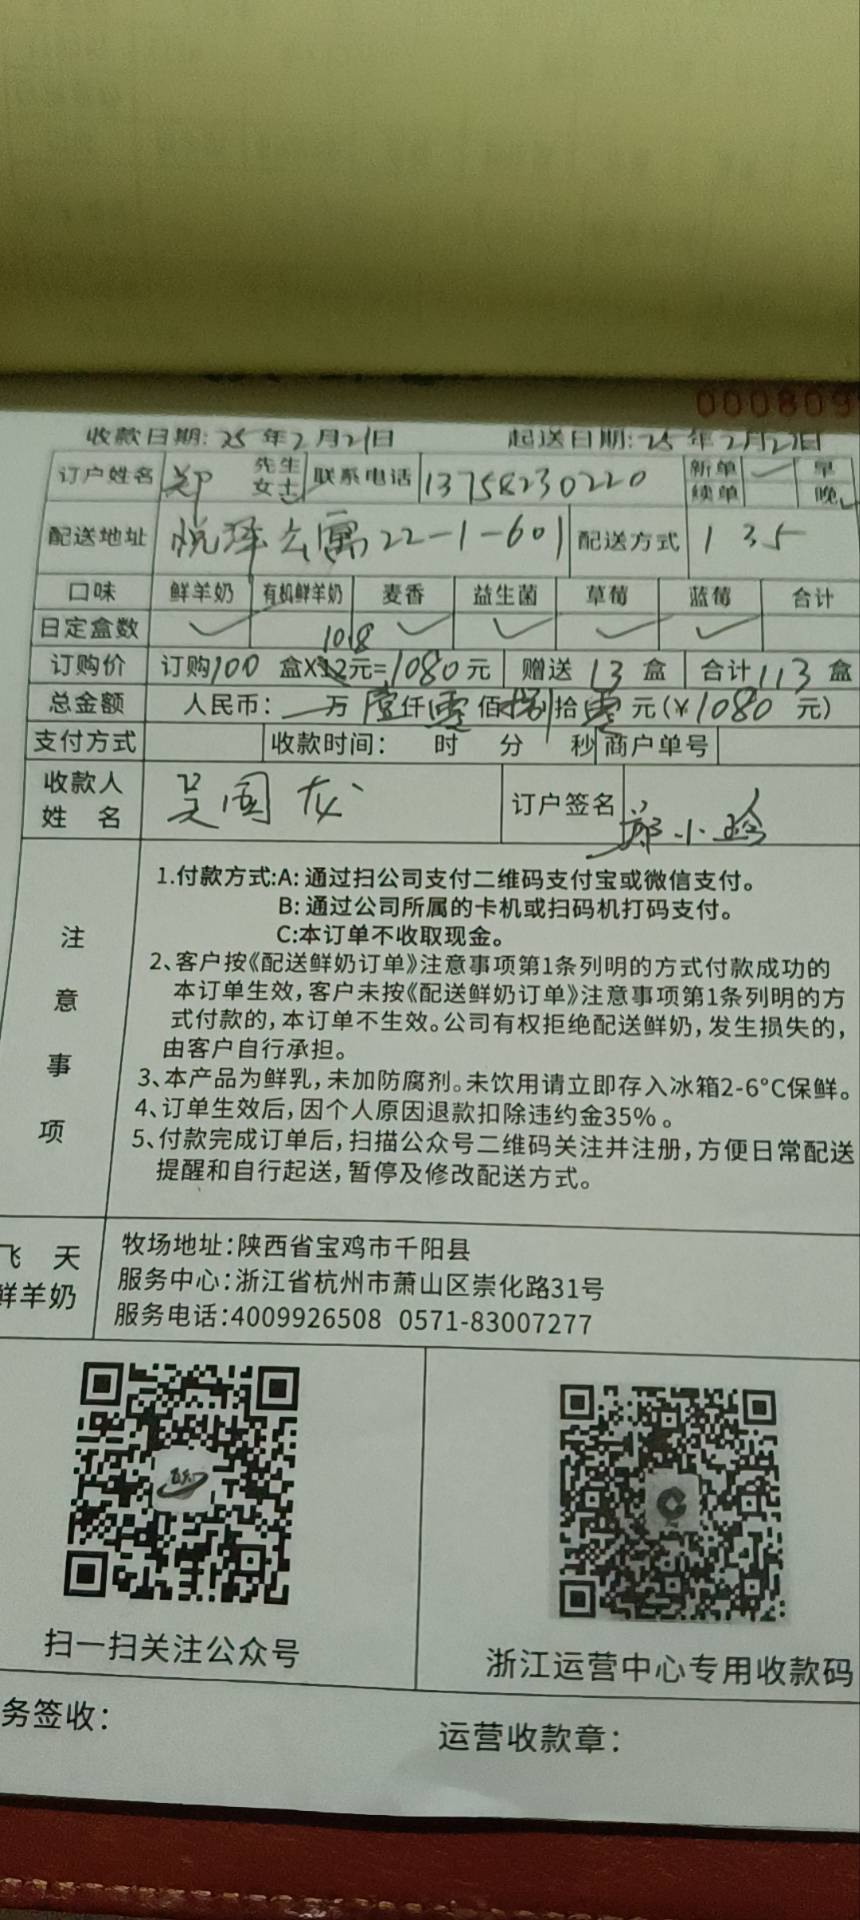 000809
收款日期:25年2月21日 起送日期:25年2月22日
订户姓名 郑 先生 女士 联系电话 13758230220 新单 早
续单 晚
配送地址 悦泽公寓22-1-601 配送方式 1 3.5
口味 鲜羊奶 有机鲜羊奶 麦香 益生菌 草莓 蓝莓 合计
日定盒数
10.8
订购价 订购100盒X12元=1080元 赠送13盒 合计113盒
总金额 人民币: 万壹仟零佰捌拾零元(¥1080元)
支付方式 收款时间: 时 分 秒 商户单号
收款人姓名 吴国龙 订户签名 郑小玲
注意事项
1.付款方式:A:通过扫公司支付二维码支付宝或微信支付。
B:通过公司所属的卡机或扫码机打码支付。
C:本订单不收取现金。
2、客户按《配送鲜奶订单》注意事项第1条列明的方式付款成功的
本订单生效,客户未按《配送鲜奶订单》注意事项第1条列明的方
式付款的,本订单不生效。公司有权拒绝配送鲜奶,发生损失的,
由客户自行承担。
3、本产品为鲜乳,未加防腐剂。未饮用请立即存入冰箱2-6°C保鲜。
4、订单生效后,因个人原因退款扣除违约金35%。
5、付款完成订单后,扫描公众号二维码关注并注册,方便日常配送
提醒和自行起送,暂停及修改配送方式。
飞天
鲜羊奶
牧场地址:陕西省宝鸡市千阳县
服务中心:浙江省杭州市萧山区崇化路31号
服务电话:4009926508 0571-83007277
扫一扫关注公众号
浙江运营中心专用收款码
务签收:
运营收款章: